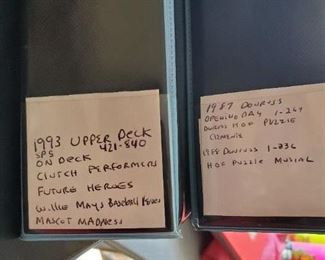 1993 UPPER DECK
SPS 421-840
ON DECK
CLUTCH PERFORMERS
FUTURE HEROES
WILLIE MAYS BASEBALL HEROES
MASCOT MADNESS
1987 DONRUSS
OPENING DAY 1-264
DONRUSS HOF PUZZLE
CLEMENTE
1988 DONRUSS 1-336
HOF PUZZLE MUSIAL